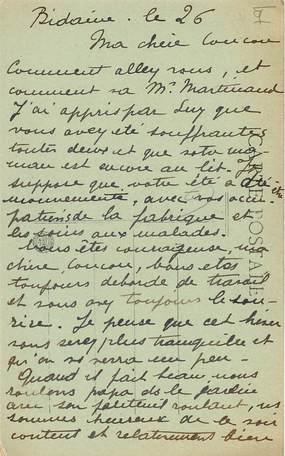 Bidaine. le 26
Ma chère Coucou
Comment allez vous, et
comment va Mr. Martinaud
J'ai appris par Luy que
vous avez été souffrantes
toutes deux et que votre ma-
man est encore au lit. Je
suppose que votre été a été
mouvementé, avec vos occu-
pations de la fabrique et
les soins aux malades.
Vous êtes courageuse, ma
chère Coucou, vous êtes
toujours débordé de travail
et vous avez toujours le sou-
rire. Je pense que cet hiver
vous serez plus tranquille et
qu'on se verra un peu -
Quand il fait beau nous
roulons papa ds le jardin
avec son fauteuil roulant, ns
sommes heureux de le voir
content et relativement bien
CARTE POSTALE